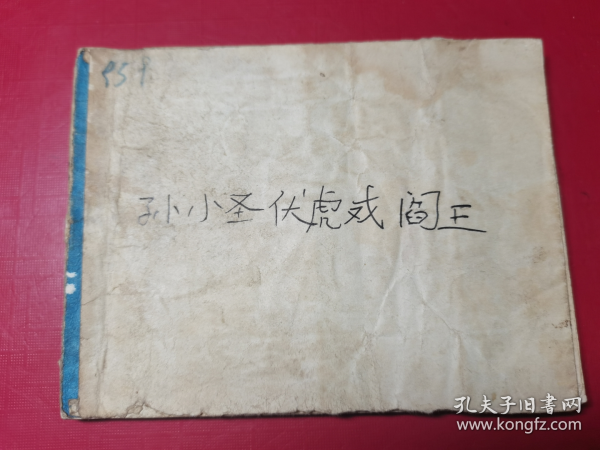 孙小圣伏虎戏阎王
孔夫子旧書网
www.kongfz.com